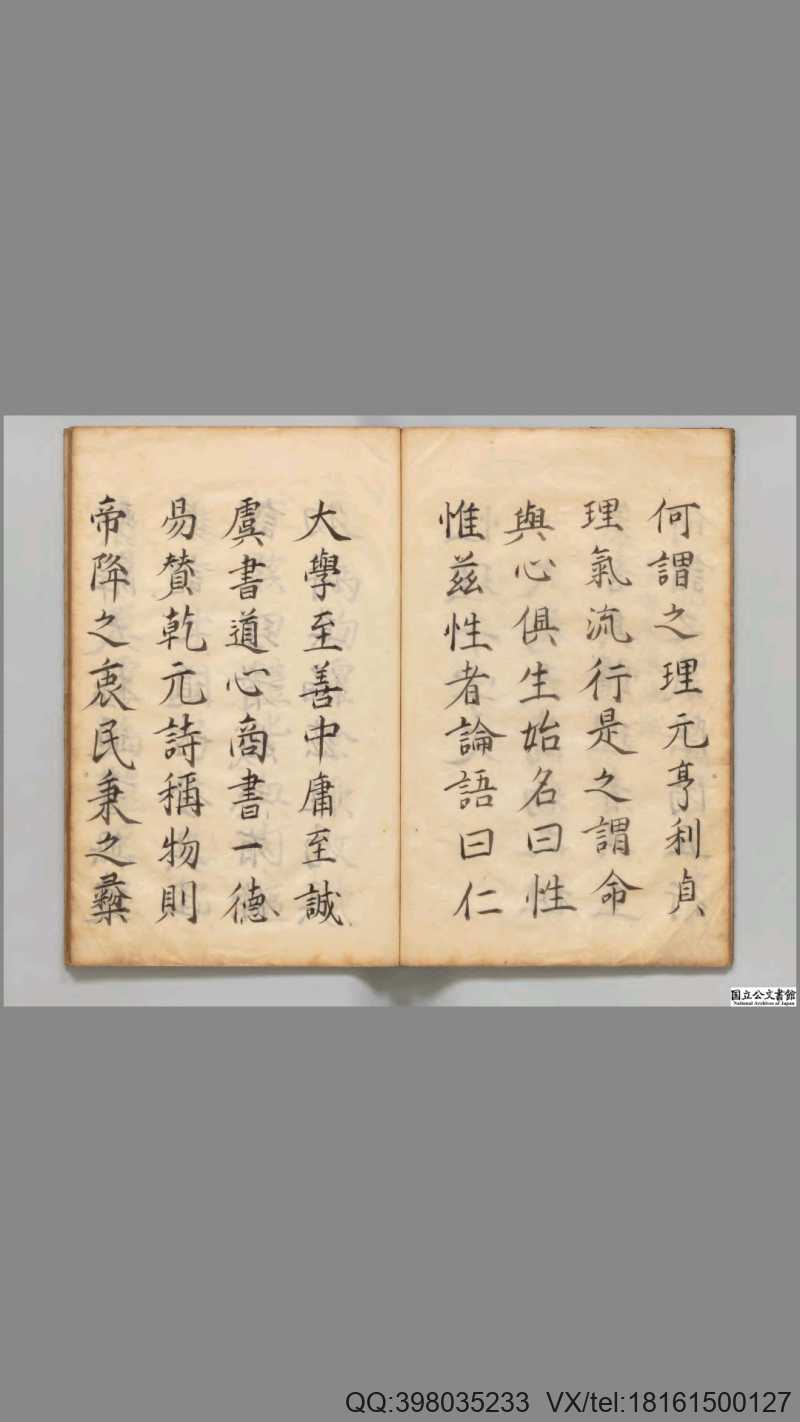 何謂之理元亨利貞
理氣流行是之謂命
與心俱生始名曰性
惟茲性者論語曰仁
大學至善中庸至誠
虞書道心商書一德
易贊乾元詩稱物則
帝降之衷民秉之彝
国立公文書館
National Archives of Japan
QQ:398035233 VX/tel:18161500127